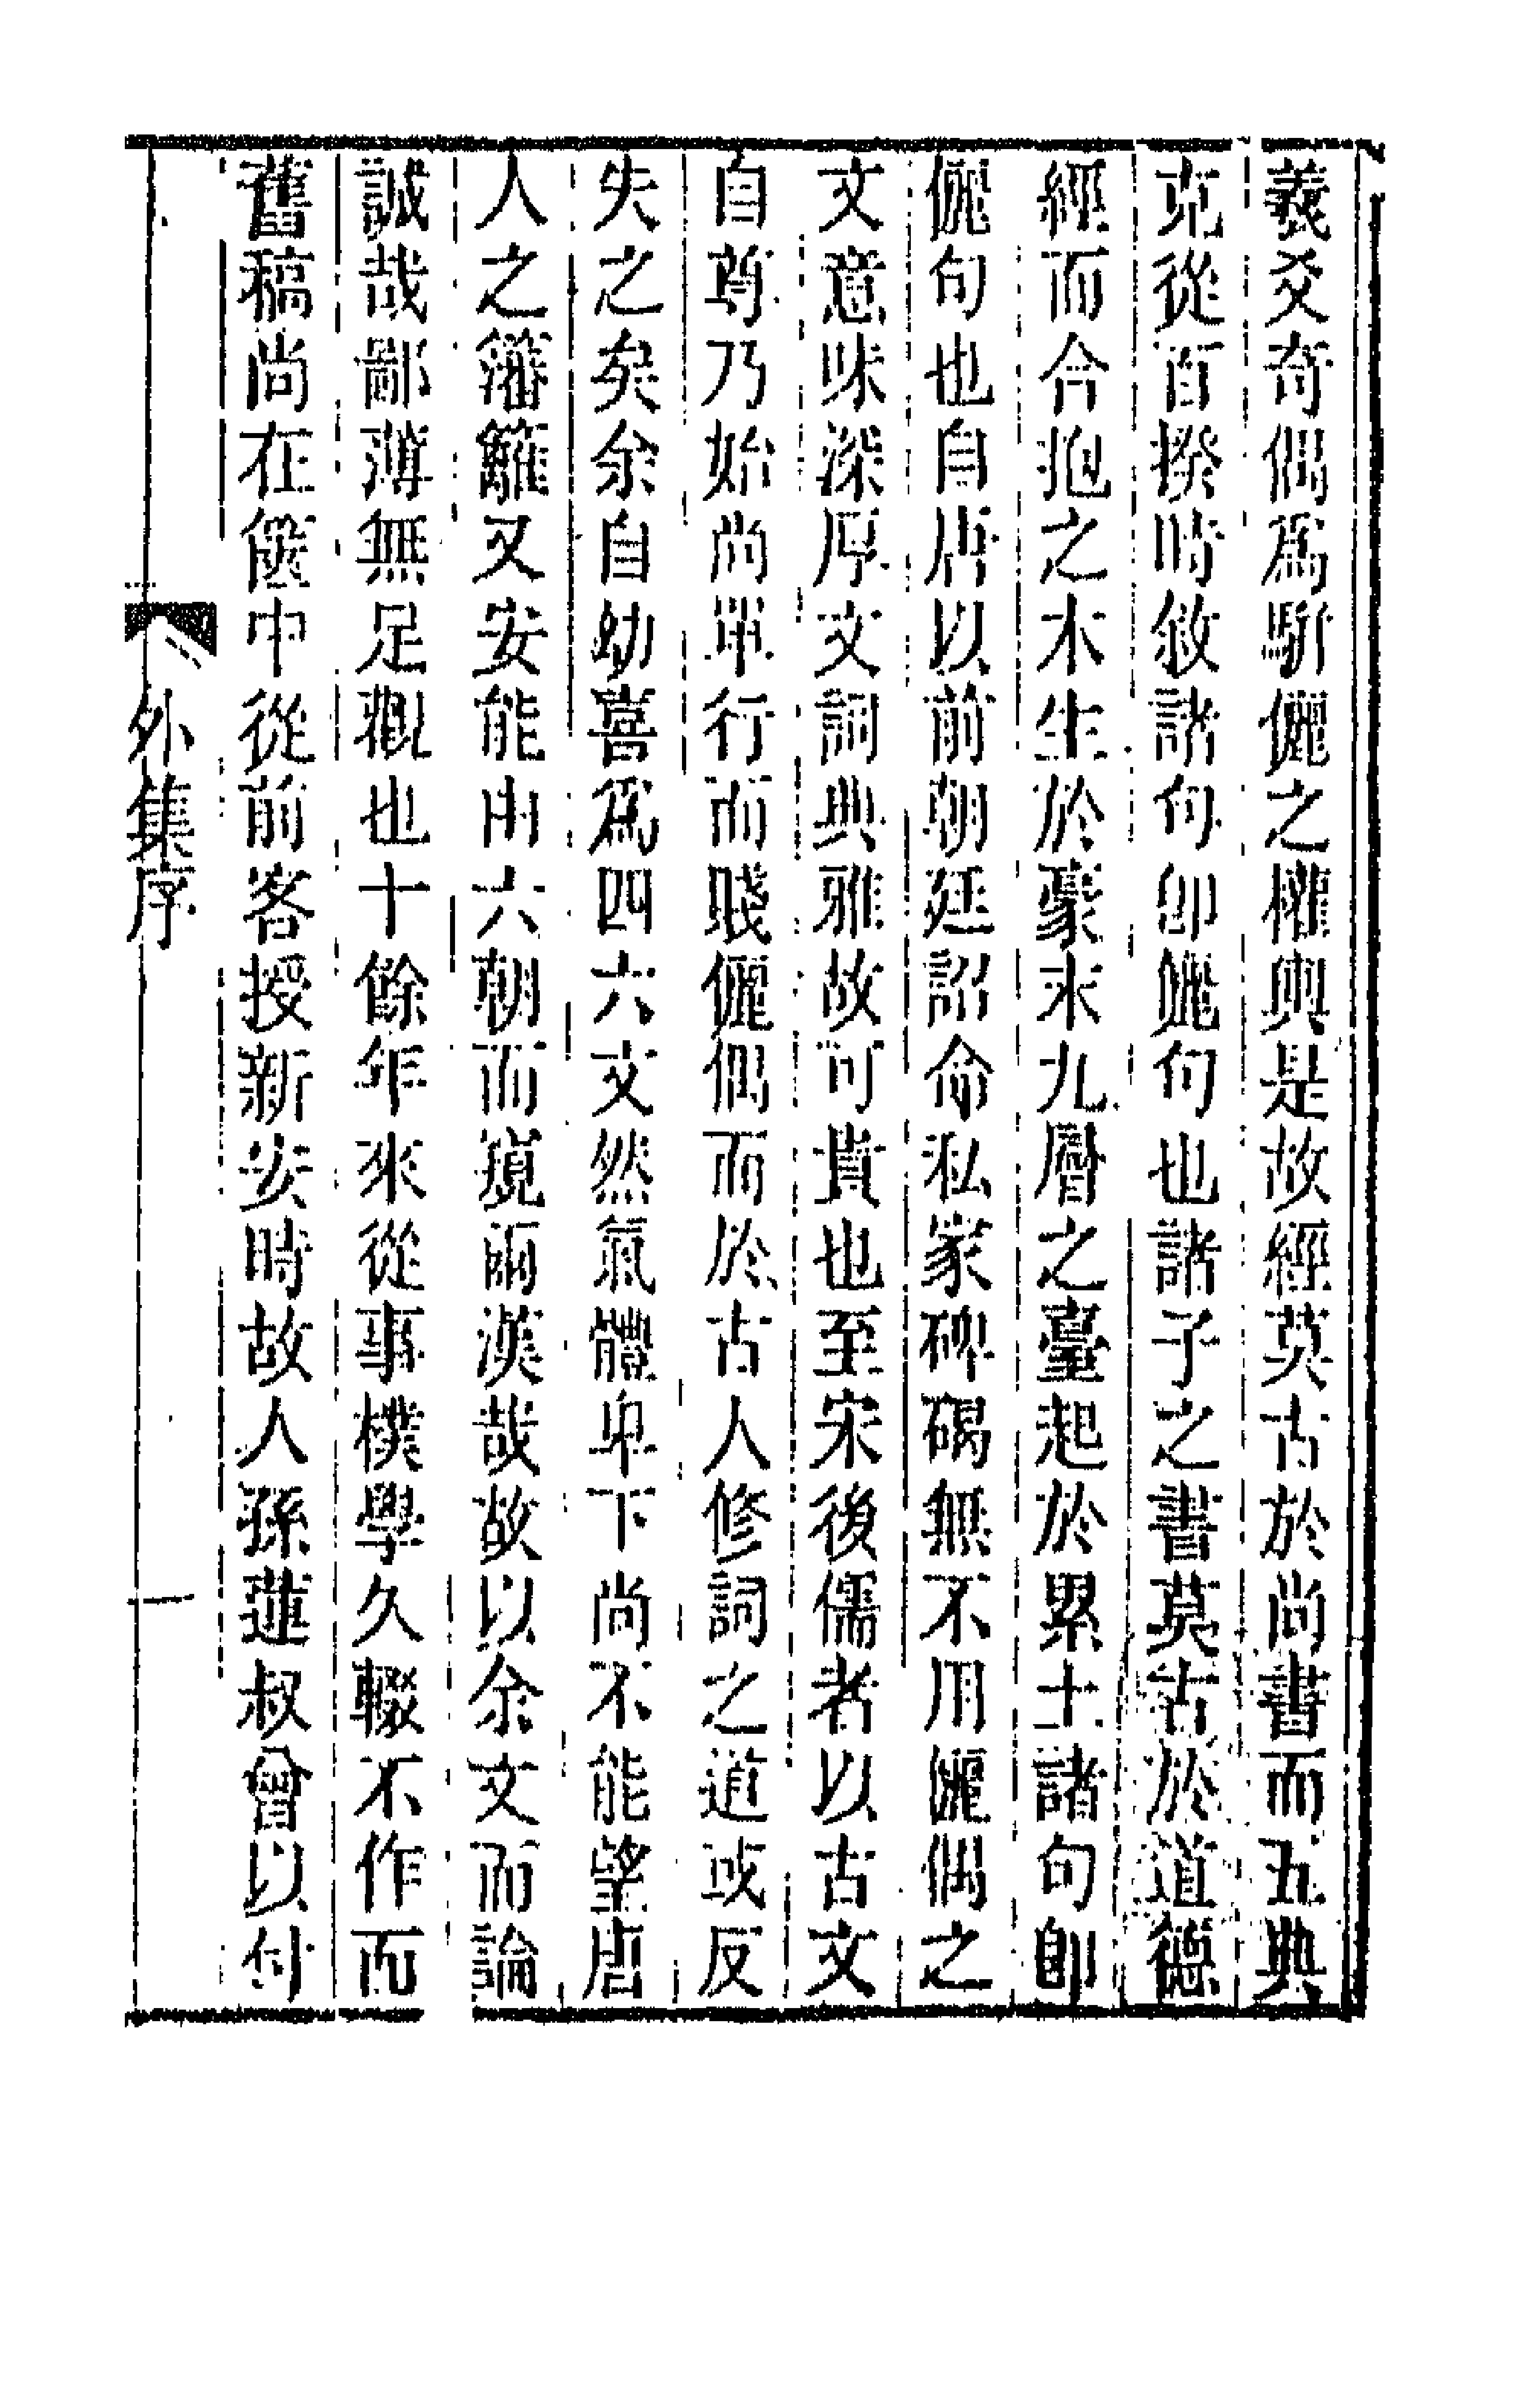 羲爻奇偶為駢儷之權輿是故經莫古於尚書而五典
克從百揆時敘諸句卽儷句也諸子之書莫古於道德
經而合抱之木生於豪末九層之臺起於累土諸句卽
儷句也自唐以前朝廷詔命私家碑碣無不用儷偶之
文意味深厚文詞典雅故可貴也至宋後儒者以古文
自尊乃始尚單行而賤儷偶而於古人修詞之道或反
失之矣余自幼喜為四六文然氣體卑下尚不能望唐
人之籓籬又安能由六朝而窺兩漢哉故以余文而論
誠哉鄙薄無足觀也十餘年來從事樸學久輟不作而
舊稿尚在篋中從前客授新安時故人孫蓮叔曾以付
外集序
一